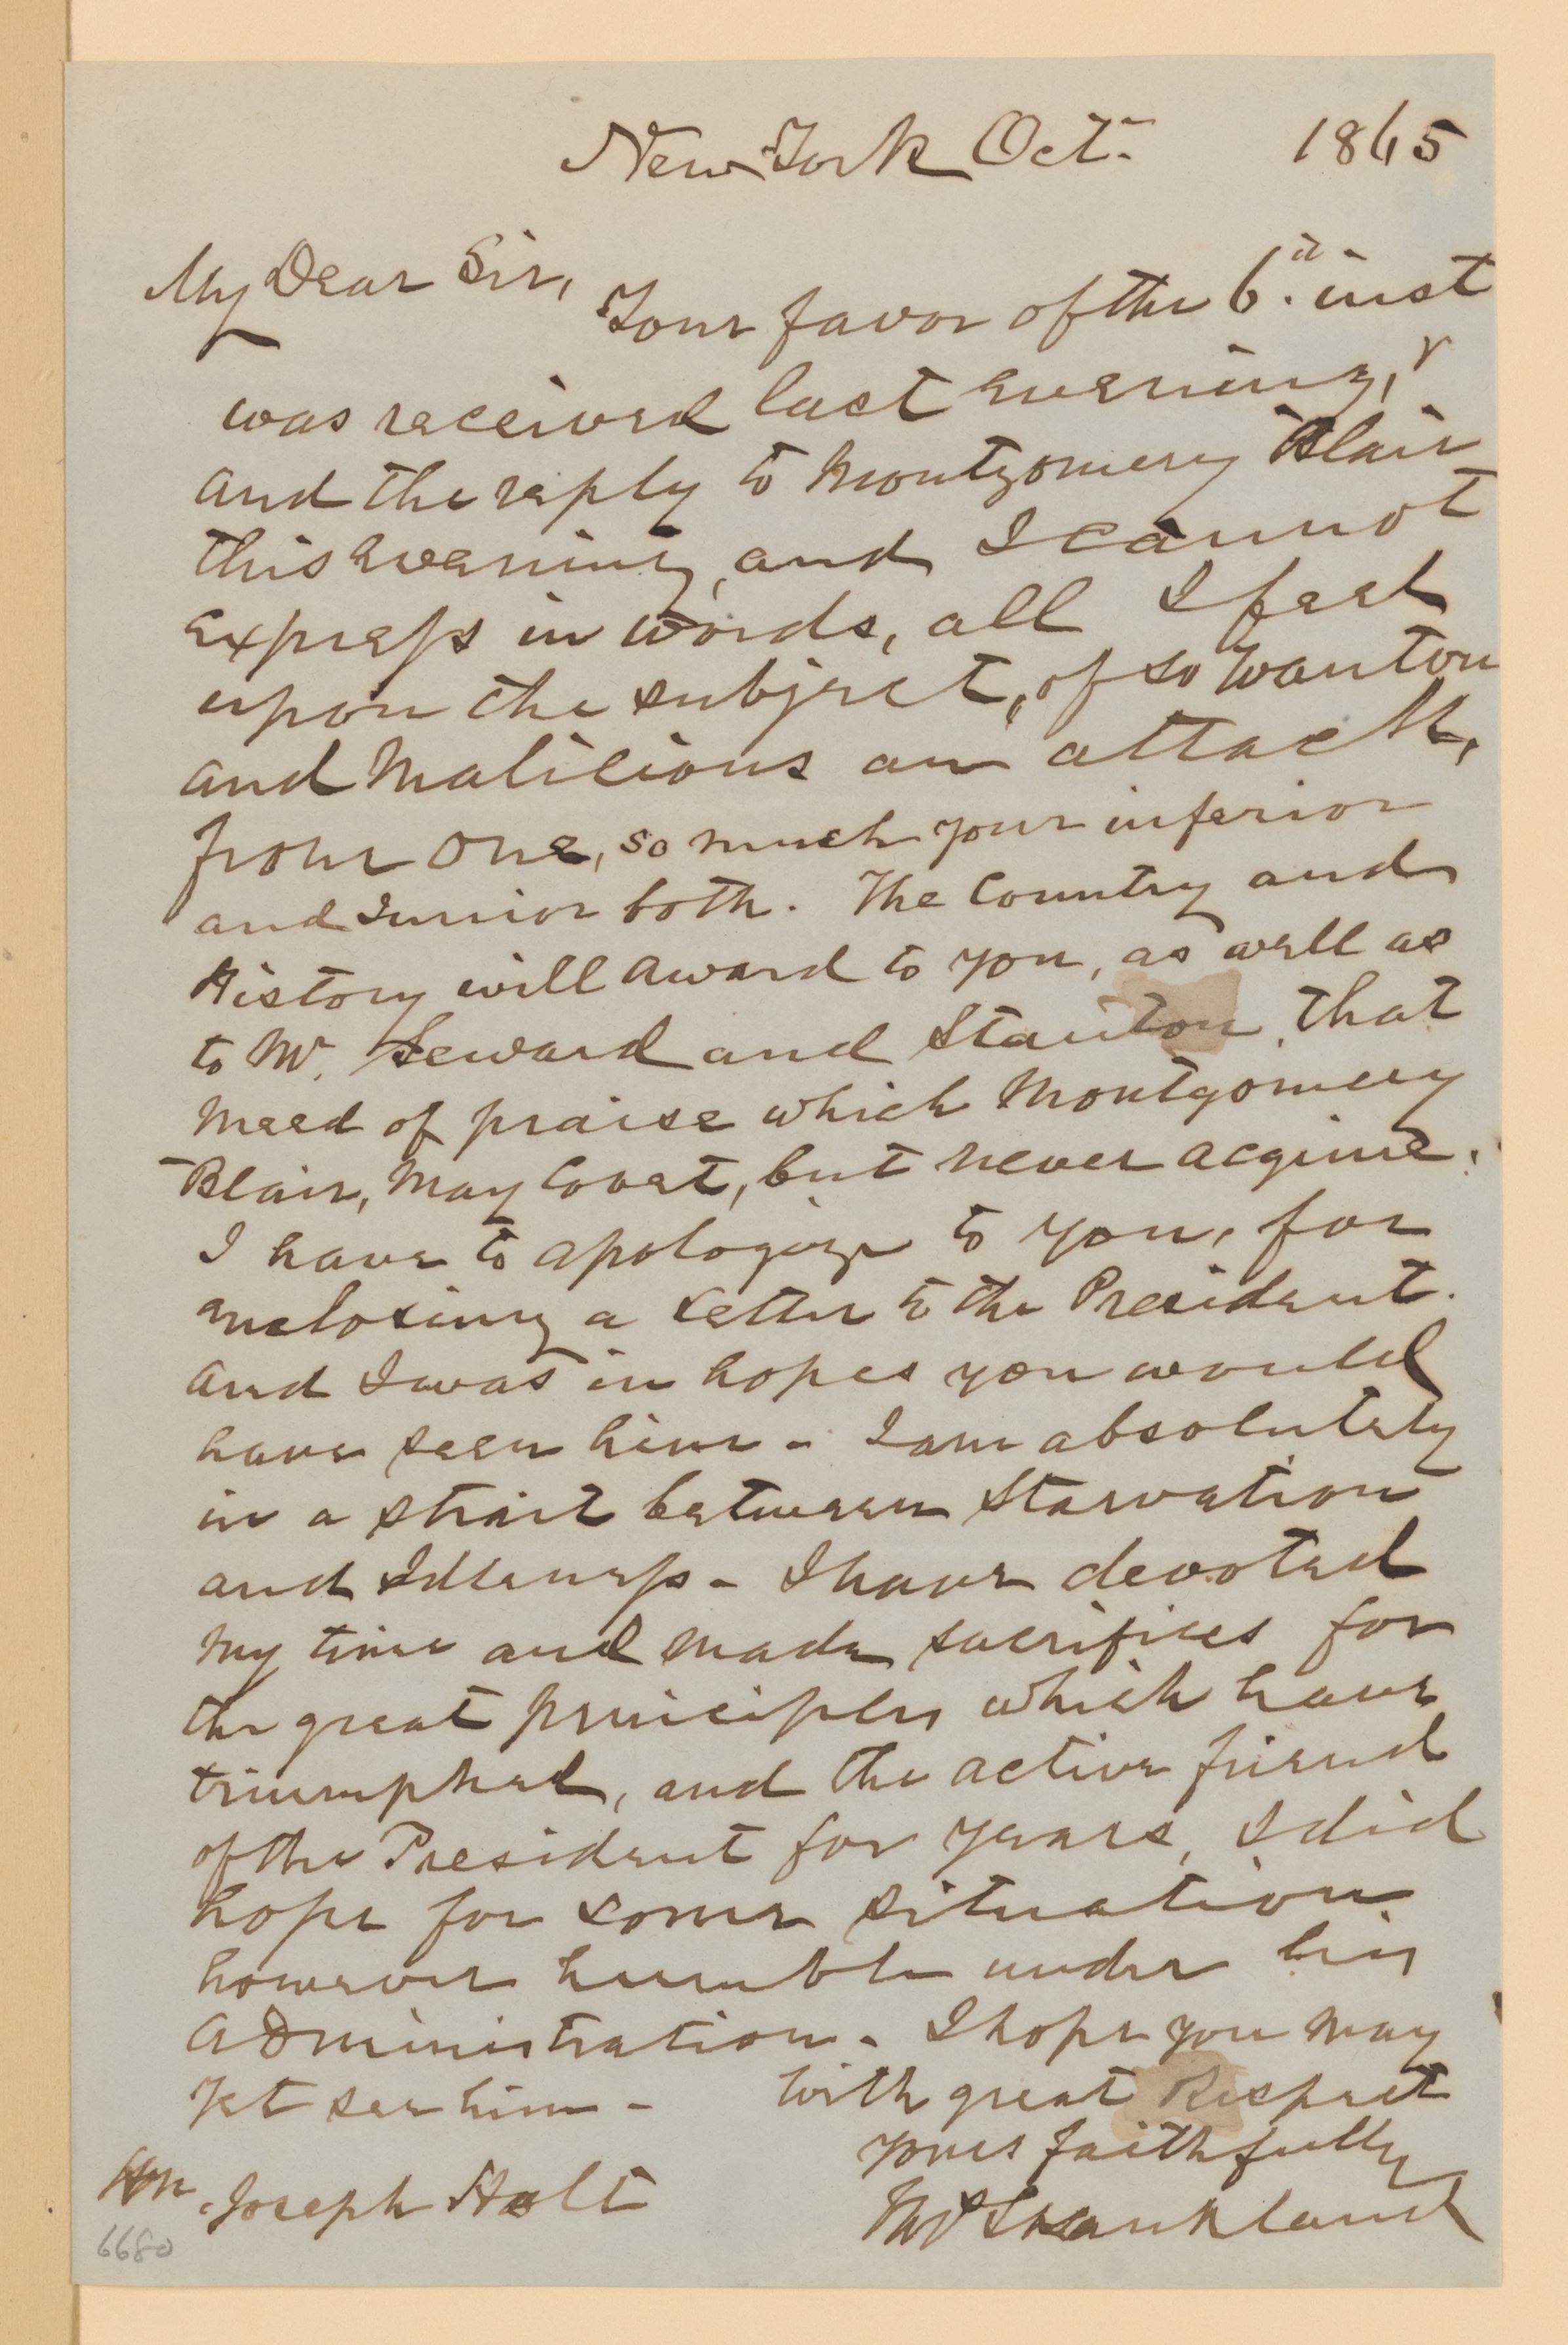 New-York Oct. 1865
My Dear Sir,
Your favor of the 6. inst
was received last evening,
and the reply to Montgomery Blair
this evening, and I cannot
express in words, all I feel
upon the subject, of so wanton
and Malicious an attack,
from one, so much your inferior
and Junior both. The Country and
History will award to you, as well as
to Mr. Seward and Stanton, that
meed of praise which Montgomery
Blair, May Covet, but never acquire.
I have to apologize to you, for
enclosing a Letter to the President.
and I was in hopes you would
have seen him - I am absolutely
in a strait between Starvation
and Idleness - I have devoted
my time and made sacrifices for
the great principles which have
triumphed, and the active friend
of the President for years, I did
hope for some situation
however humble under his
Administration - I hope you may
Yet see him - With great Respect
yours faithfully
Shankland
Hon. Joseph Holt
6680